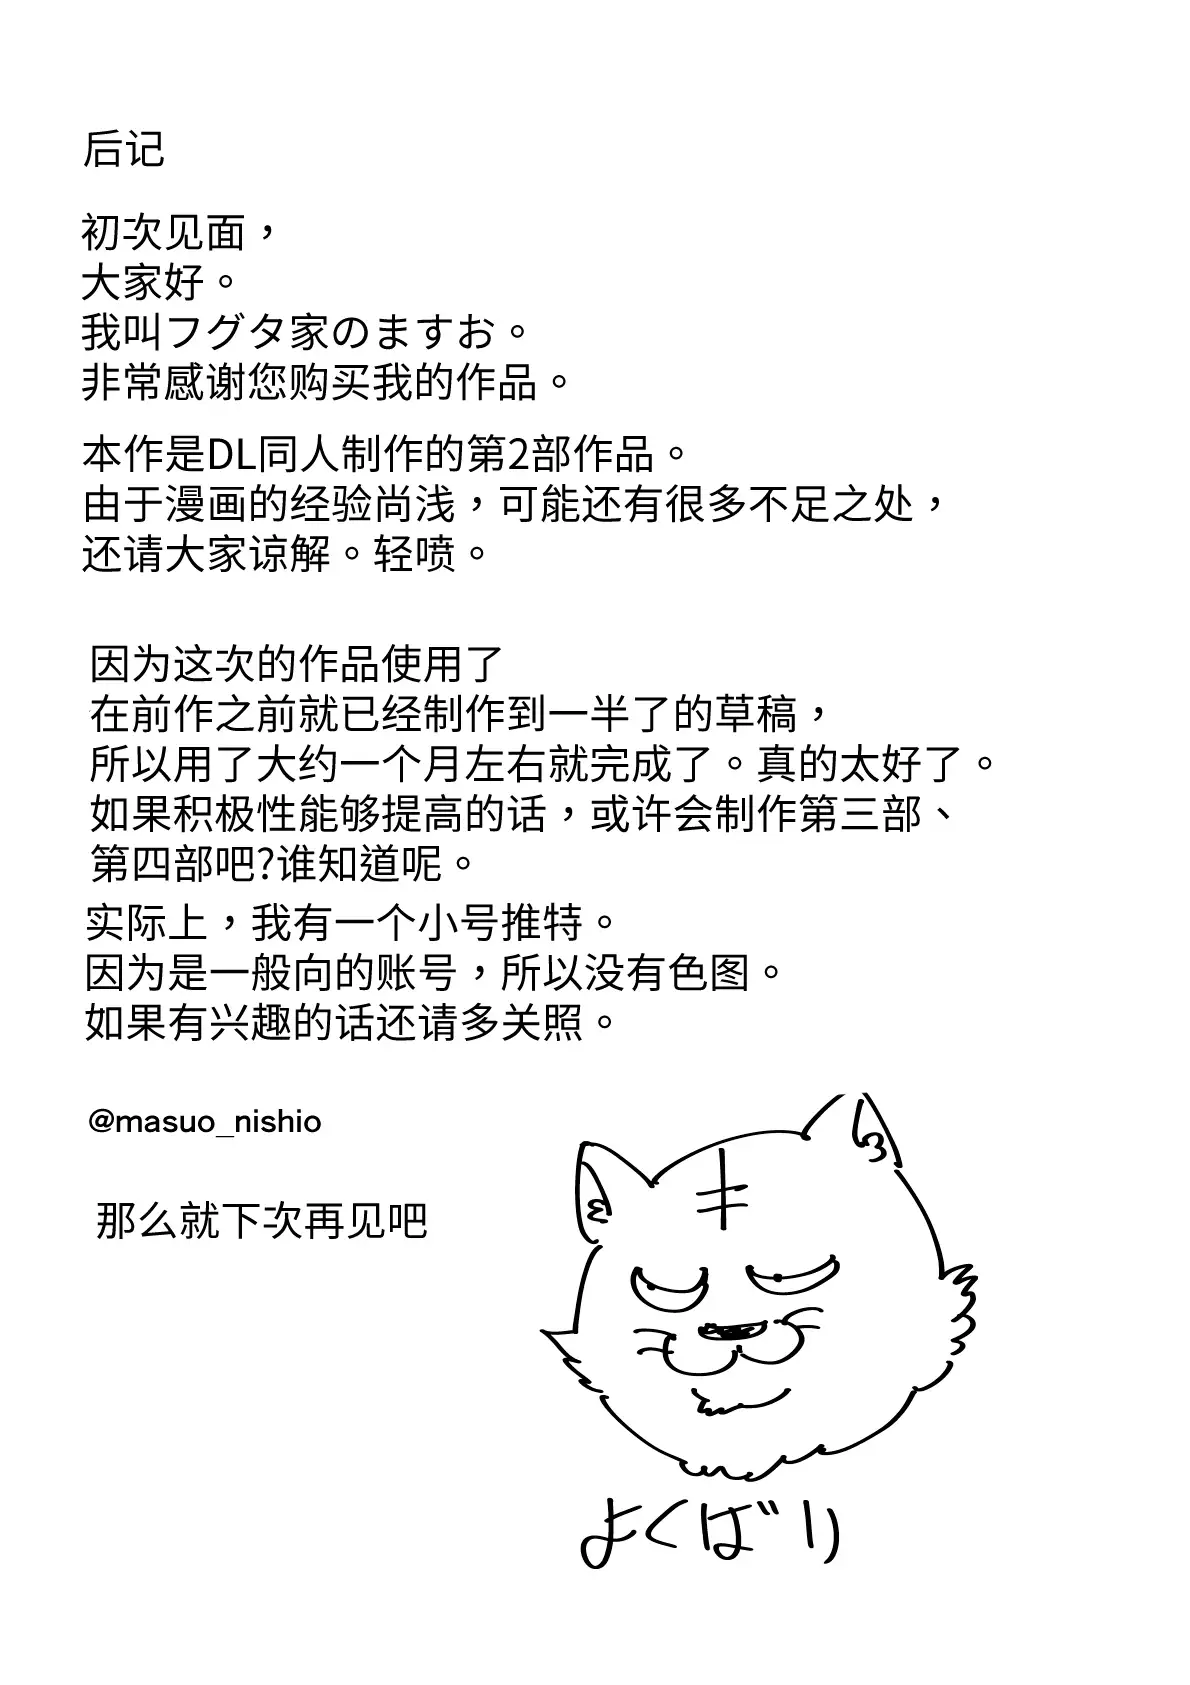 后记
初次见面，
大家好。
我叫フグタ家のますお。
非常感谢您购买我的作品。
本作是DL同人制作的第2部作品。
由于漫画的经验尚浅，可能还有很多不足之处，
还请大家谅解。轻喷。
因为这次的作品使用了
在前作之前就已经制作到一半了的草稿，
所以用了大约一个月左右就完成了。真的太好了。
如果积极性能够提高的话，或许会制作第三部、
第四部吧?谁知道呢。
实际上，我有一个小号推特。
因为是一般向的账号，所以没有色图。
如果有兴趣的话还请多关照。
@masuo_nishio
那么就下次再见吧
よくばり